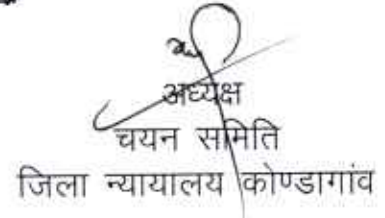 अध्यक्ष
चयन समिति
जिला न्यायालय कोण्डागांव